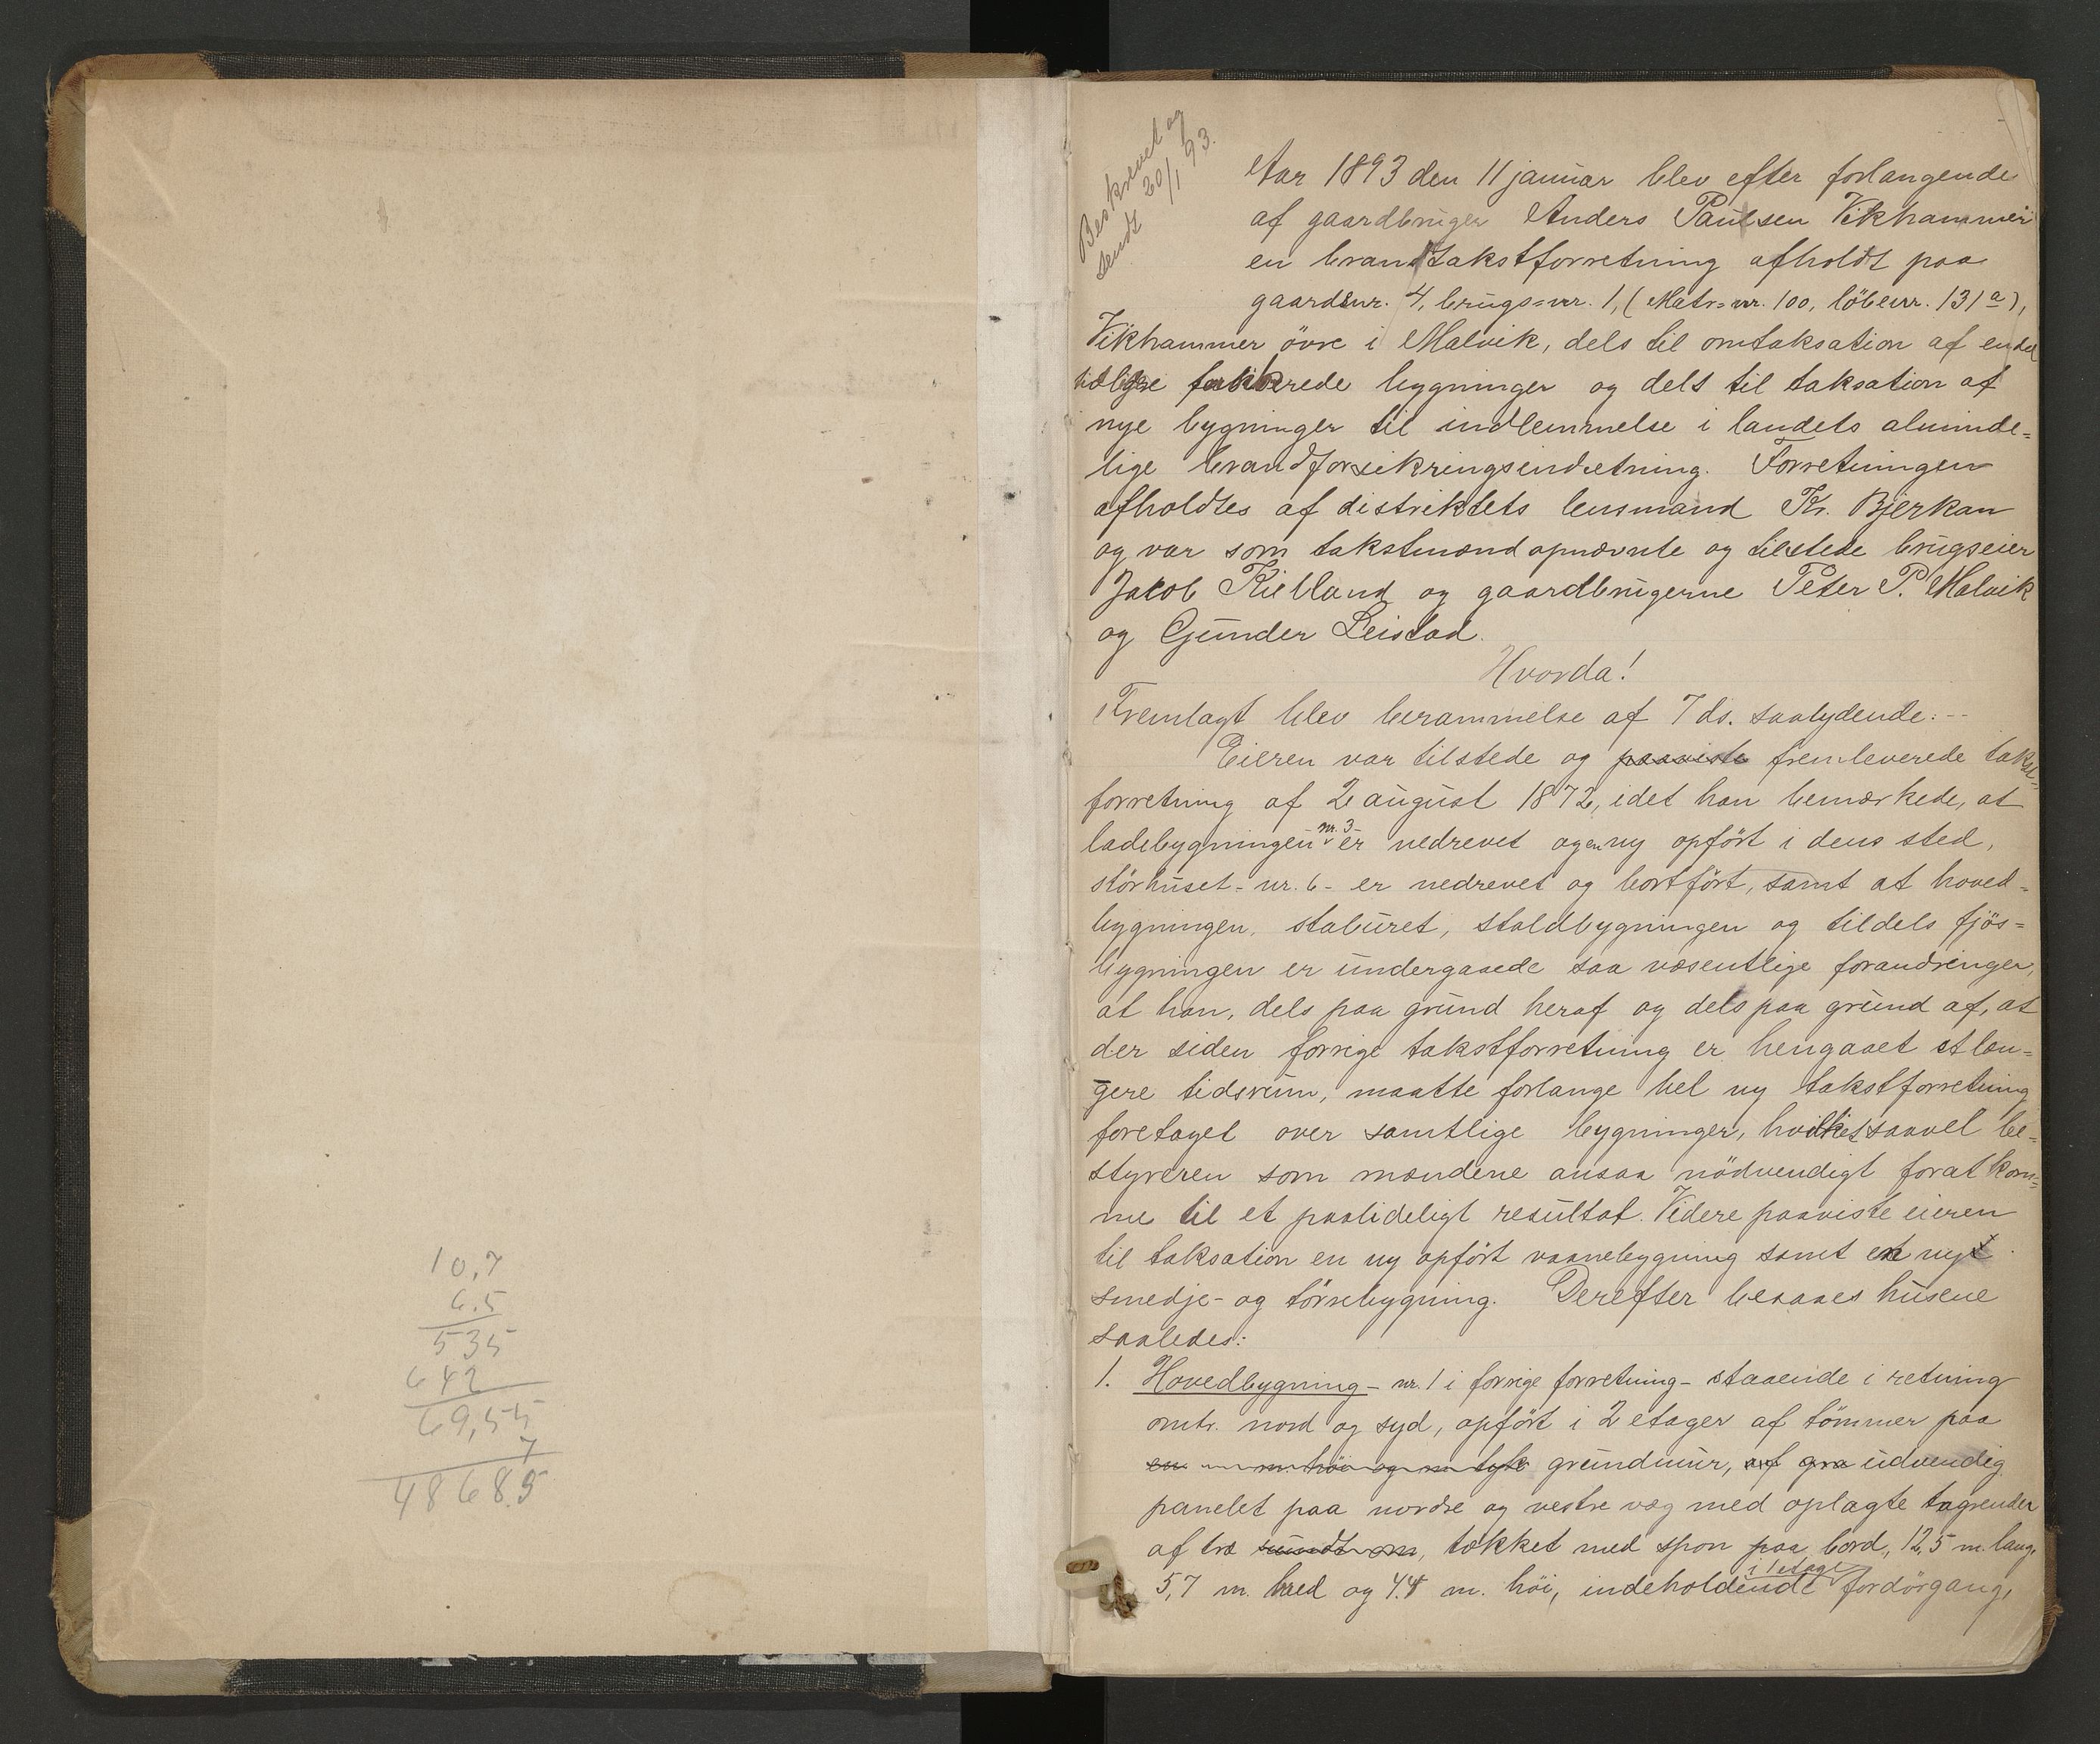 10,7
6.5
535
642
69,55
7
48685
Beskrevet og
sendt 20/1 93.
Aar 1893 den 11 januar blev efter forlangende
af gaardbruger Anders Paulsen Vikhammer
en brandtakstforretning afholdt paa
gaardsnr. 4, brugs=nr. 1, (Matr=nr. 100, löbenr. 131a),
Vikhammer övre i Malvik, dels til omtaksation af endel
tidligere bygninger og dels til taksation af
nye bygninger til indlemmelse i landets alminde=
lige brandforsikringsindretning. Forretningen
afholdtes af distriktets lensmand Kr. Bjerkan
og var som takstmænd opnævnte og tilstede brugseier
Jacob Kielland og gaardbrugerne Peter P. Malvik
og Gunder Leistad.
Hvorda!
Fremlagt blev berammelse af 7 ds. saalydende:--
Eieren var tilstede og paaviste fremleverede takst=
forretning af 2 august 1872, idet han bemærkede, at
ladebygningen nr. 3 er nedrevet og en ny opfört i dens sted,
störhuset - nr. 6 - er nedrevet og bortfört, samt at hoved=
bygningen, staburet, staldbygningen og tildels fjös=
bygningen er undergaaede saa væsentlige forandringer,
at han, dels paa grund heraf og dels paa grund af, at
der siden forrige takstforretning er hengaaet et læn=
gere tidsrum, maatte forlange hel ny takstforretning
foretaget over samtlige bygninger, hvilket saavel be=
styreren som mændene ansaa nödvendigt forat kom=
me til et paalideligt resultat. Videre paaviste eieren
til taksation en ny opfört vaanebygning samt en ny
smedje- og törrebygning. Derefter besaaes husene
saaledes:
1. Hovedbygning - nr. 1 i forrige forretning - staaende i retning
omtr. nord og syd, opfört i 2 etager af tömmer paa
en m. höi og m. tyk grundmur, af gra udvendig
panelet paa nordre og vestre væg med oplagte tagrender
af træ rundt om, tækket med spon paa bord, 12,5 m. lang,
5,7 m. bred og 4.4 m. höi, indeholdende i 1 etage fordörgang,